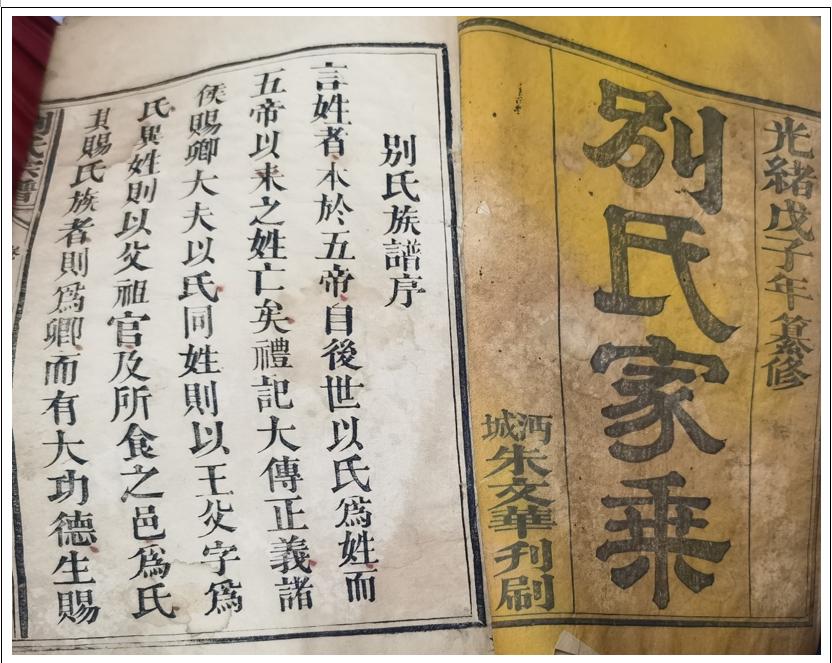 光緒戊子年纂修
別氏家乘
沔城朱文華刋刷
別氏族譜序
言姓者本於五帝自後世以氏爲姓而
五帝以来之姓亡矣禮記大傳正義諸
侯賜卿大夫以氏同姓則以王父字爲
氏異姓則以父祖官及所食之邑爲氏
其賜氏族者則爲卿而有大功德生賜
氏宗譜